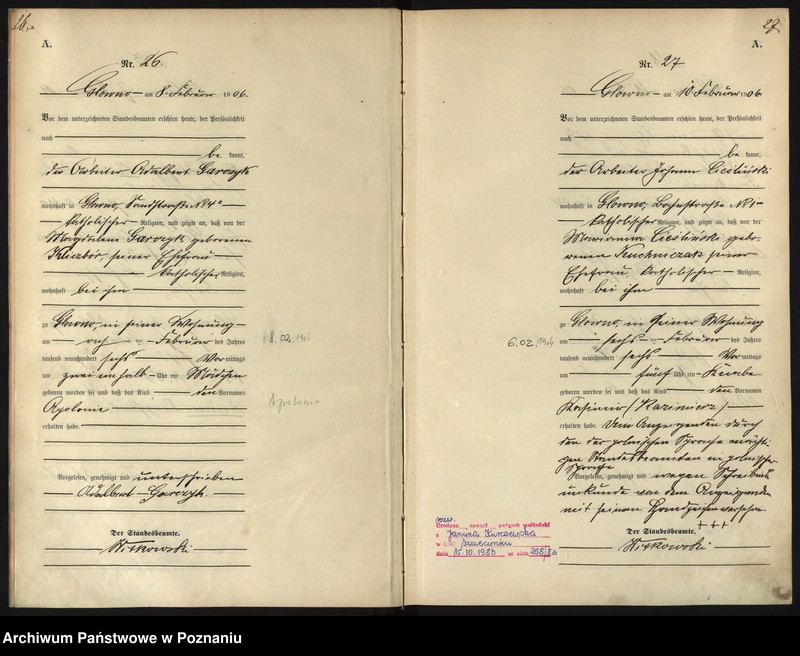 26.
A.
Nr. 26.
Glowno am 8. Februar 1906.
Vor dem unterzeichneten Standesbeamten erschien heute, der Persönlichkeit
nach
be kannt,
der Arbeiter Adalbert Garczyk
wohnhaft in Glowno,
katholischer Religion, und zeigte an, daß von der
Magdalena Garczyk geborenen
seiner Ehefrau
katholischer Religion,
wohnhaft bei ihm
zu Glowno, in seiner Wohnung
am Februar des Jahres
tausend neunhundert sechs Vormittags
um zwei einhalb Uhr ein Mädchen
geboren worden sei und daß das Kind den Vornamen
Apolonie
erhalten habe.
Vorgelesen, genehmigt und unterschrieben
Adalbert Garczyk.
Der Standesbeamte.
Witkowski
8.02.1906
Apolonia
27.
A.
Nr. 27
Glowno am 10 Februar 1906
Vor dem unterzeichneten Standesbeamten erschien heute, der Persönlichkeit
nach
be kannt,
der Arbeiter Johann Cieśliński
wohnhaft in Glowno, No 1
katholischer Religion, und zeigte an, daß von der
Marianna Cieśliński gebo-
renen seiner
Ehefrau, katholischer Religion,
wohnhaft bei ihm
zu Glowno, in seiner Wohnung
am sechs Februar des Jahres
tausend neunhundert sechs Vormittags
um fünf Uhr ein Knabe
geboren worden sei und daß das Kind den Vornamen
Kasimir (Kazimierz)
erhalten habe. Dem Anzeigenden durch
den der polnischen Sprache mächti-
gen Standesbeamten in polnischer
Sprache
Vorgelesen, genehmigt und wegen Schreibens
unkunde von dem Anzeigenden
mit seinem Handzeichen versehen.
+++
Der Standesbeamte.
Witkowski
6.02.1906
Urodzon zawarł związek małżeński
z Janiną
w Szczecinku
dnia 15.10.1983 nr aktu 268/83
Archiwum Państwowe w Poznaniu